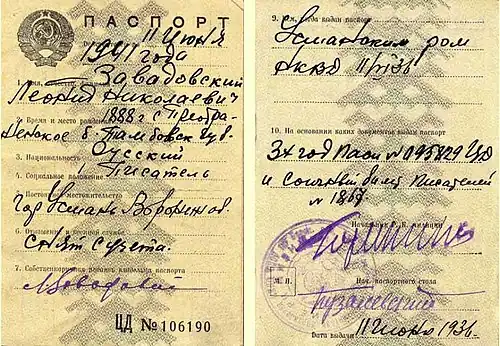 ПАСПОРТ
11 Июня
1941 года
Завадовский
1. Имя,
Леонид Николаевич
2. Время и место рождения 1888 г. с Преобра-
женское б. Тамбовск губ.
3. Национальность Русский
4. Социальное положение Писатель
5. Постоянное местожительство
гор Усмань Воронежов.
6. Отношение к военной службе
снят с учета.
7. Собственноручная подпись владельца паспорта
ЦД № 106190
9. Кем, когда выдан паспорт
Усманским ром
НКВД 11/VI 36г
10. На основании каких документов выдан паспорт
3х год Пасп № 095829
и союзный билет Писателей
№ 1867.
Начальник Р. К. милиции
М. П.
Нач. паспортного стола
Дата выдачи 11 Июня 1936.